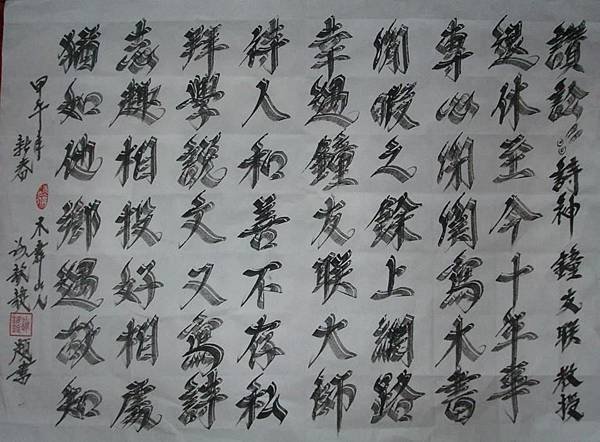 讚 詩神 鐘友聯教授
退休至今十年華
專心 寫水書
閒暇之餘上網路
幸遇鐘友聯大師
待人和善不存私
拜學說文又寫詩
志趣相投好相處
猶如他鄉遇故知
甲午年新春 木 山人 書